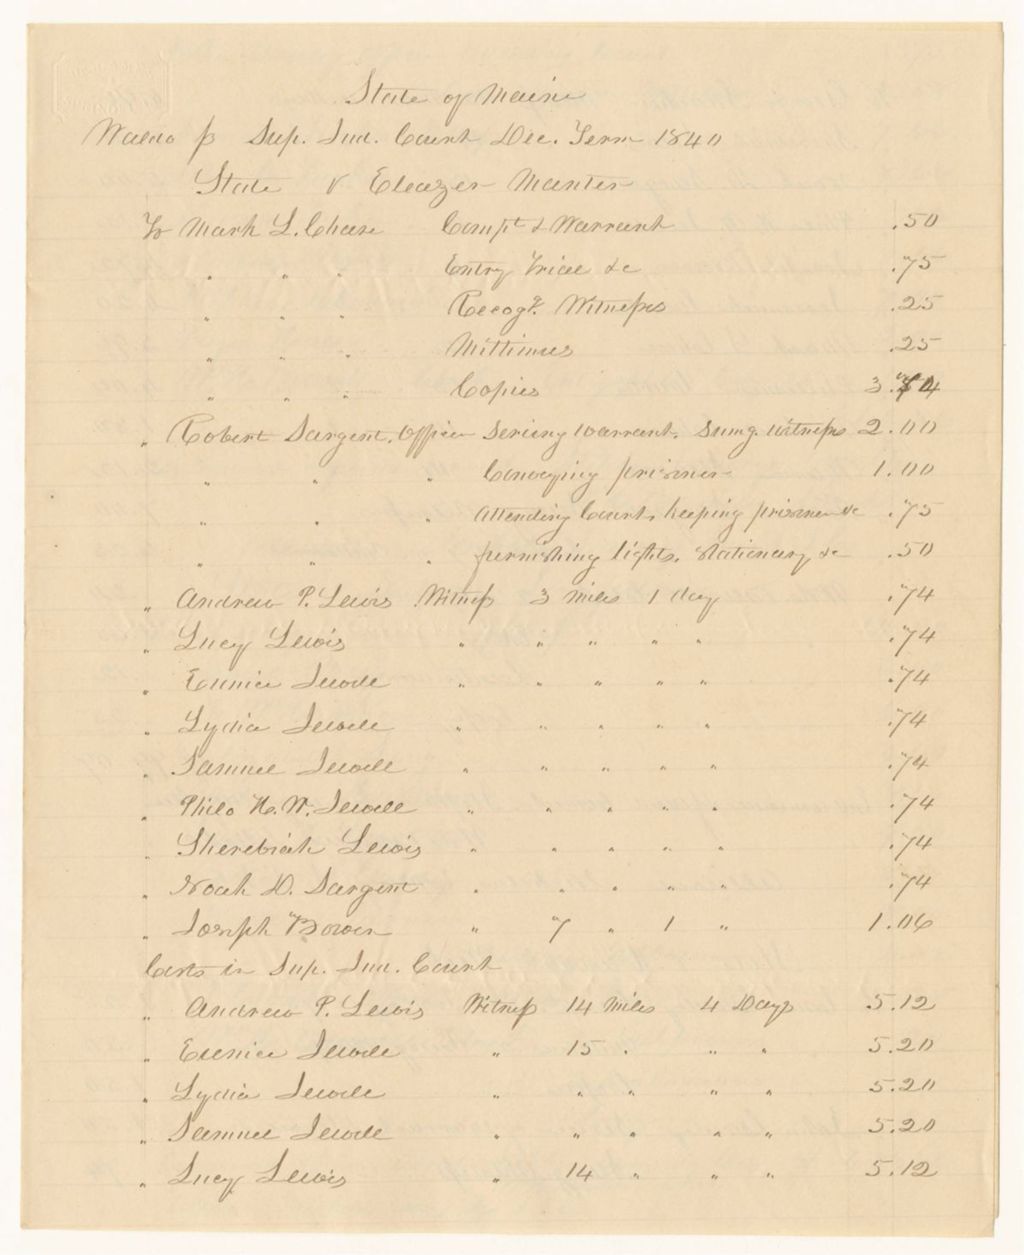 State of Maine
Waldo ss Sup. Jud. Court Dec. Term 1840
State v Eleazer Manter
To Mark L. Chase Compt & Warrant .50
" " " Entry Trial &c .75
" " " Recogz. Witnesses .25
" " " Mittimus .25
" " " Copies 3.
" Robert Sargent, Officer Serving warrant, Sumg. witness 2.00
" " " Conveying prisoner 1.00
" " " Attending Court, keeping prisoner &c .75
" " " furnishing lights, stationery &c .50
" Andrew P. Lewis Witness 3 miles 1 day .74
" Lucy Lewis " " " " " .74
" Eunice Jewell " " " " " .74
" Lydia Jewell " " " " " .74
" Samuel Jewell " " " " " .74
" Philo H. W. Jewell " " " " " .74
" Sherebiah Lewis " " " " " .74
" Noah D. Sargent " " " " " .74
" Joseph Bowen " 7 " 1 " 1.06
Costs in Sup. Jud. Court
" Andrew P. Lewis Witness 14 miles 4 Days 5.12
" Eunice Jewell " 15 " " " 5.20
" Lydia Jewell " " " " " 5.20
" Samuel Jewell " " " " " 5.20
" Lucy Lewis " 14 " " " 5.12